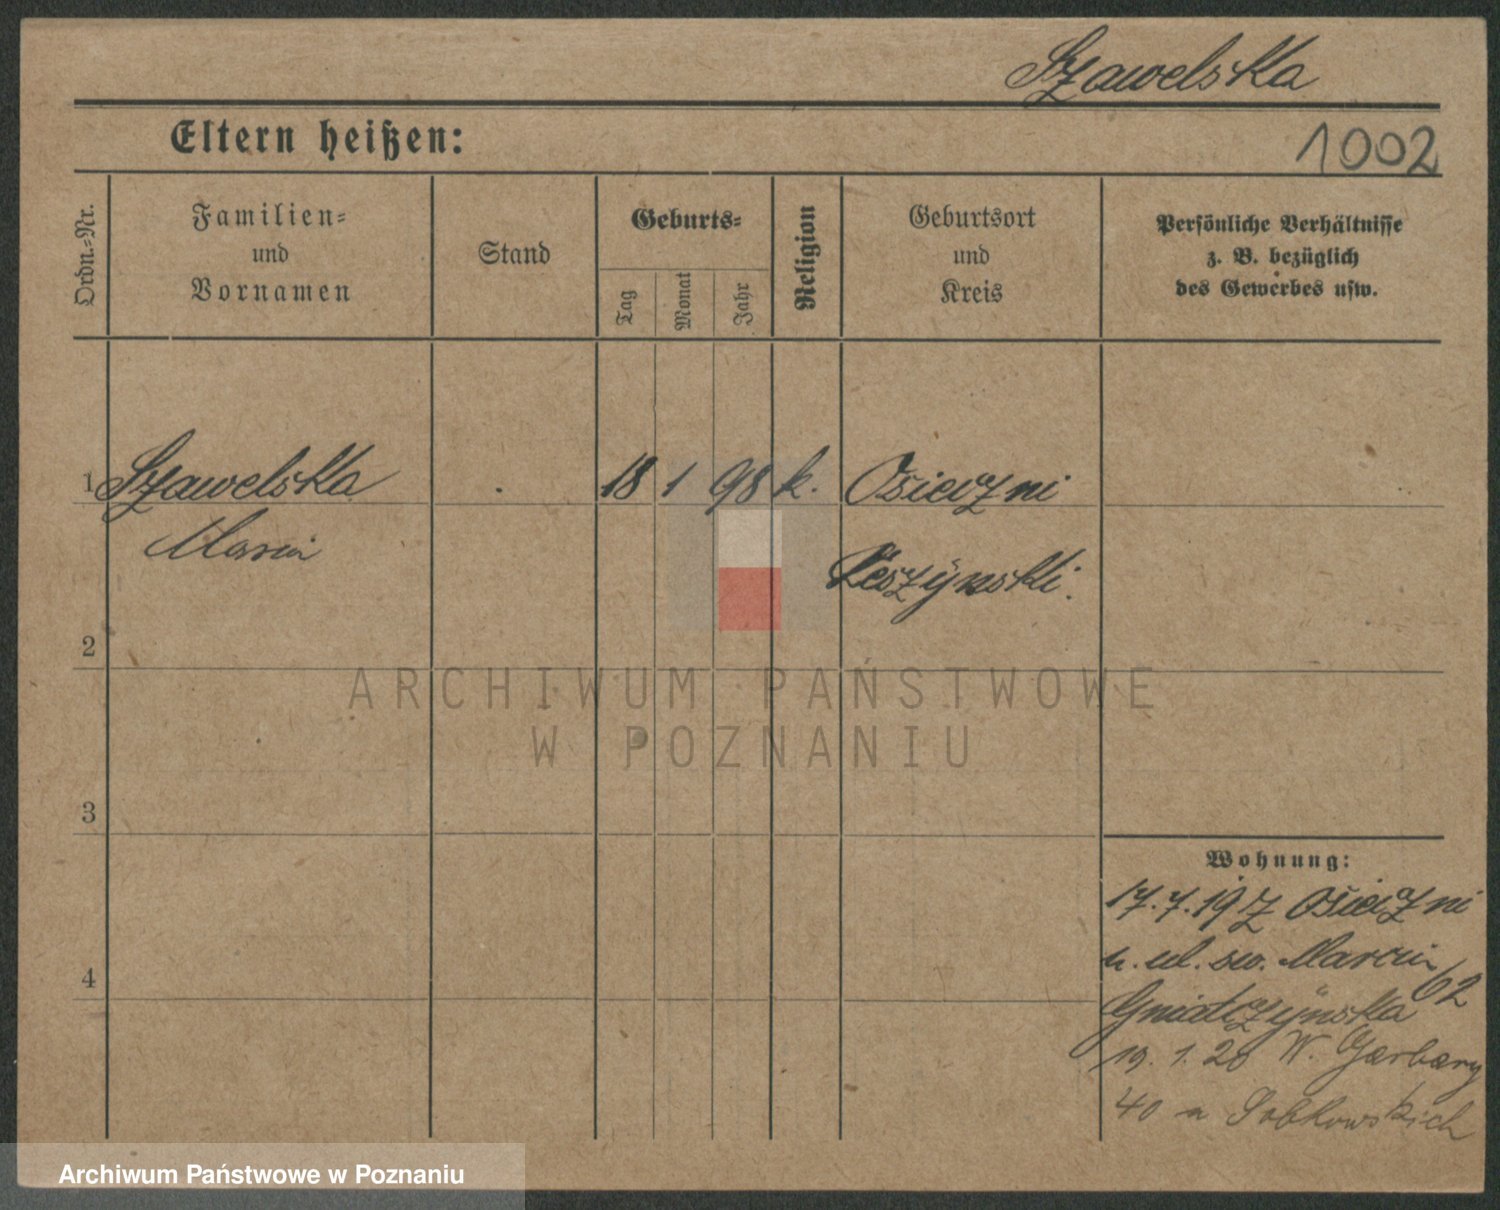 Szawelska
Eltern heißen:
1002
Ordn.-Nr.
Familien-
und
Vornamen
Stand
Geburts-
Tag
Monat
Jahr
Religion
Geburtsort
und
Kreis
Persönliche Verhältnisse
z. B. bezüglich
des Gewerbes usw.
1 Szawelska . 18 1 98 k. Osieczni
Maria
Leszynski.
2
ARCHIWUM PAŃSTWOWE
W POZNANIU
3
Wohnung:
17.7.19 z Osieczni
ul. sw. Marcin 62
4
19. 1. 20 W. Garbary
40 Sobkowskich
Archiwum Państwowe w Poznaniu